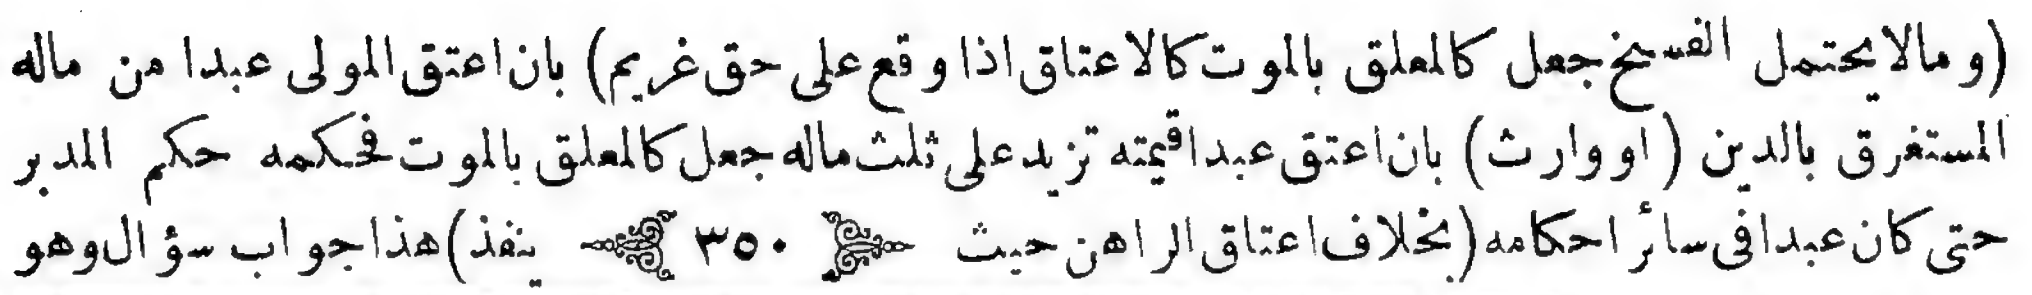 (ومالا يحتمل الفسخ جعل كالمعلق بالموت كالاعتاق اذا وقع على حق غريم) بان اعتق المولى عبدا من ماله
المستغرق بالدين (او وارث) بان اعتق عبدا قيمته تزيد على ثلث ماله جعل كالمعلق بالموت فحكمه حكم المدبر
حتى كان عبدا فى سائر احكامه (بخلاف اعتاق الراهن حيث ﴿ ٣٥٠ ﴾ ينفذ) هذا جواب سؤال وهو